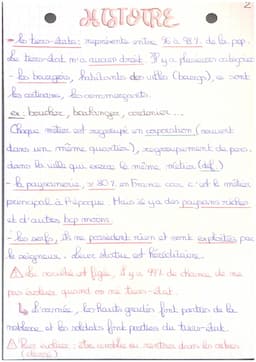 2
HISTOIRE
- Le tiers-état : représente entre 96 à 98 % de la pop.
Le tiers-état n'a aucun droit. Il y a plusieurs catégories
- Les bourgeois, habitants des villes (bourg), ce sont
les artisans, les commerçants.
ex : boucher, boulanger, cordonier ...
Chaque métier est regroupé en corporation (souvent
dans un même quartier), regroupement de pers.
dans la ville qui exerce le même métier (déf.)
- la paysannerie, ≈ 80 % en France car c'est le métier
principal à l'époque. Mais il y a des paysans riches
et d'autres bcp moins.
- Les serfs, ils ne possèdent rien et sont exploités par
le seigneur. Leur statut est héréditaire.
⚠ La société est figée, il y a 99% de chance de ne
pas évoluer quand on née tiers-état.
↳ L'armée, les hauts gradés font parties de la
noblesse et les soldats font parties du tiers-état.
⚠ Pour évoluer : être anobli ou rentrer dans les ordres
(clergé)